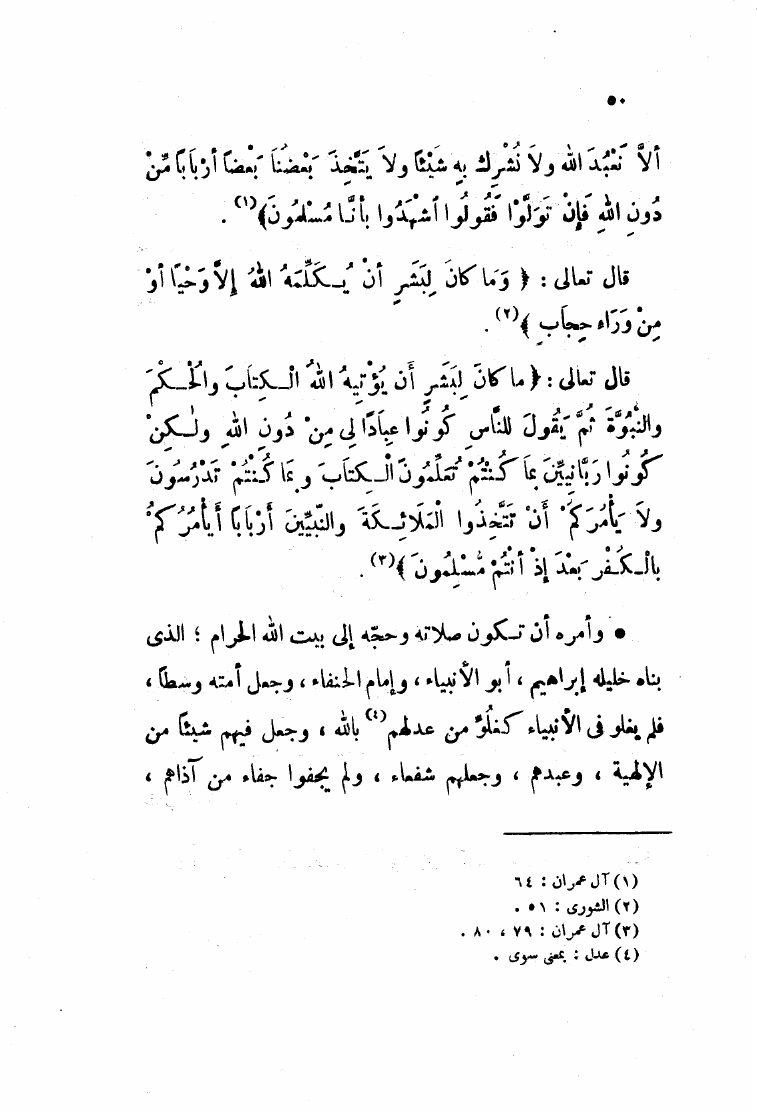 ٥٠
ألاَّ نَعْبُدَ الله ولاَ نُشْرِكَ بِهِ شَيْئًا ولاَ يَتَّخِذَ بَعْضُنَا بَعْضًا أرْبَابًا مِّنْ
دُونِ اللهِ فَإِنْ تَوَلَّوْا فَقُولُوا ٱشْهَدُوا بأنَّا مُسْلمُونَ﴾(١) .
قال تعالى : ﴿ وَمَا كانَ لِبَشَرٍ أنْ يُـكَلِّمَهُ اللهُ إلاَّ وَحْيًا أوْ
مِنْ وَرَاء حِجابٍ ﴾(٢) .
قال تعالى : ﴿ ما كانَ لِبَشَرٍ أَن يُؤْتِيهُ اللهُ الْـكِتابَ والْحُـكْمَ
والنُّبُوَّةَ ثُمَّ يَقُولَ للنَّاسِ كُونُوا عِبادًا لِى مِنْ دُونِ اللهِ ولٰـكِنْ
كُونُوا رَبَّانِيِّينَ بِمَا كُنْتُمْ تُعَلِّمُونَ الْـكِتابَ وبِمَا كُنْتُمْ تَدْرُسُونَ
ولاَ يَأْمُرَكُمْ أنْ تَتَّخِذُوا الْمَلاَئِـكَةَ والنَّبِيِّينَ أرْبَابًا أيَأْمُرُكُمْ
بالْـكُفْرِ بَعْدَ إِذْ أنْتُمْ مُّسْلِمُونَ ﴾(٣) .
• وأمره أن تـكون صلاته وحجّه إلى بيت الله الحرام ؛ الذى
بناه خليله إبراهيم ، أبو الأنبياء ، وإمام الحنفاء ، وجعل أمته وسطًا ،
فلم يغلو فى الأنبياء كَغُلُوِّ من عدلهم(٤) بالله ، وجعل فيهم شيئًا من
الإلهية ، وعبدهم ، وجعلهم شفعاء ، ولم يجفوا جفاء من آذاهم ،
(١) آل عمران : ٦٤
(٢) الشورى : ٥١ .
(٣) آل عمران : ٧٩ ، ٨٠ .
(٤) عدل : بمعنى سوى .